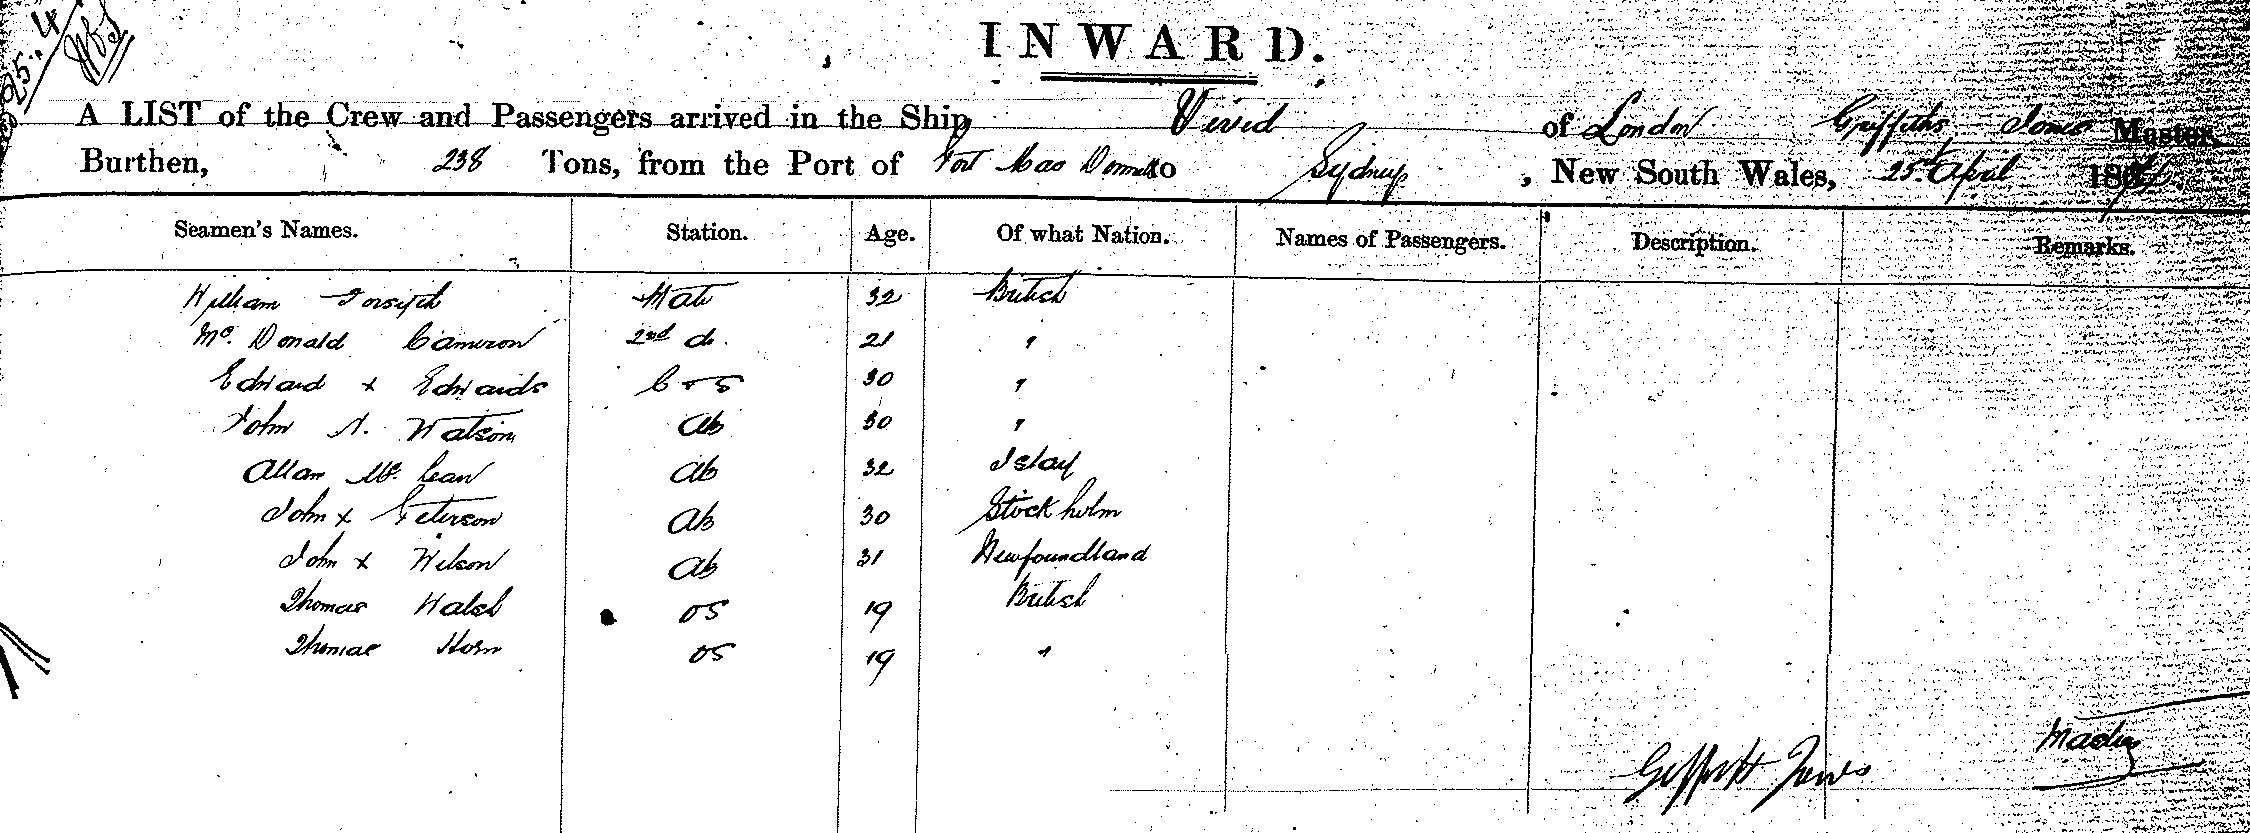 25.4
INWARD.
A LIST of the Crew and Passengers arrived in the Ship Vivid of London Griffiths Jones Master,
Burthen, 238 Tons, from the Port of Port Mac Donnell to Sydney, New South Wales, 25th April 187
Seamen's Names. Station. Age. Of what Nation. Names of Passengers. Description. Remarks.
William Forsyth Mate 32 British
Mc. Donald Cameron 2nd do. 21 "
Edward x Edwards C & S 30 "
John A. Watson Ab 30 "
Allan Mc. Lean Ab 32 Islay
John x Peterson Ab 30 Stockholm
John x Wilson Ab 31 Newfoundland
Thomas Walsh OS 19 British
Thomas Horn OS 19 "
Griffith Jones Master